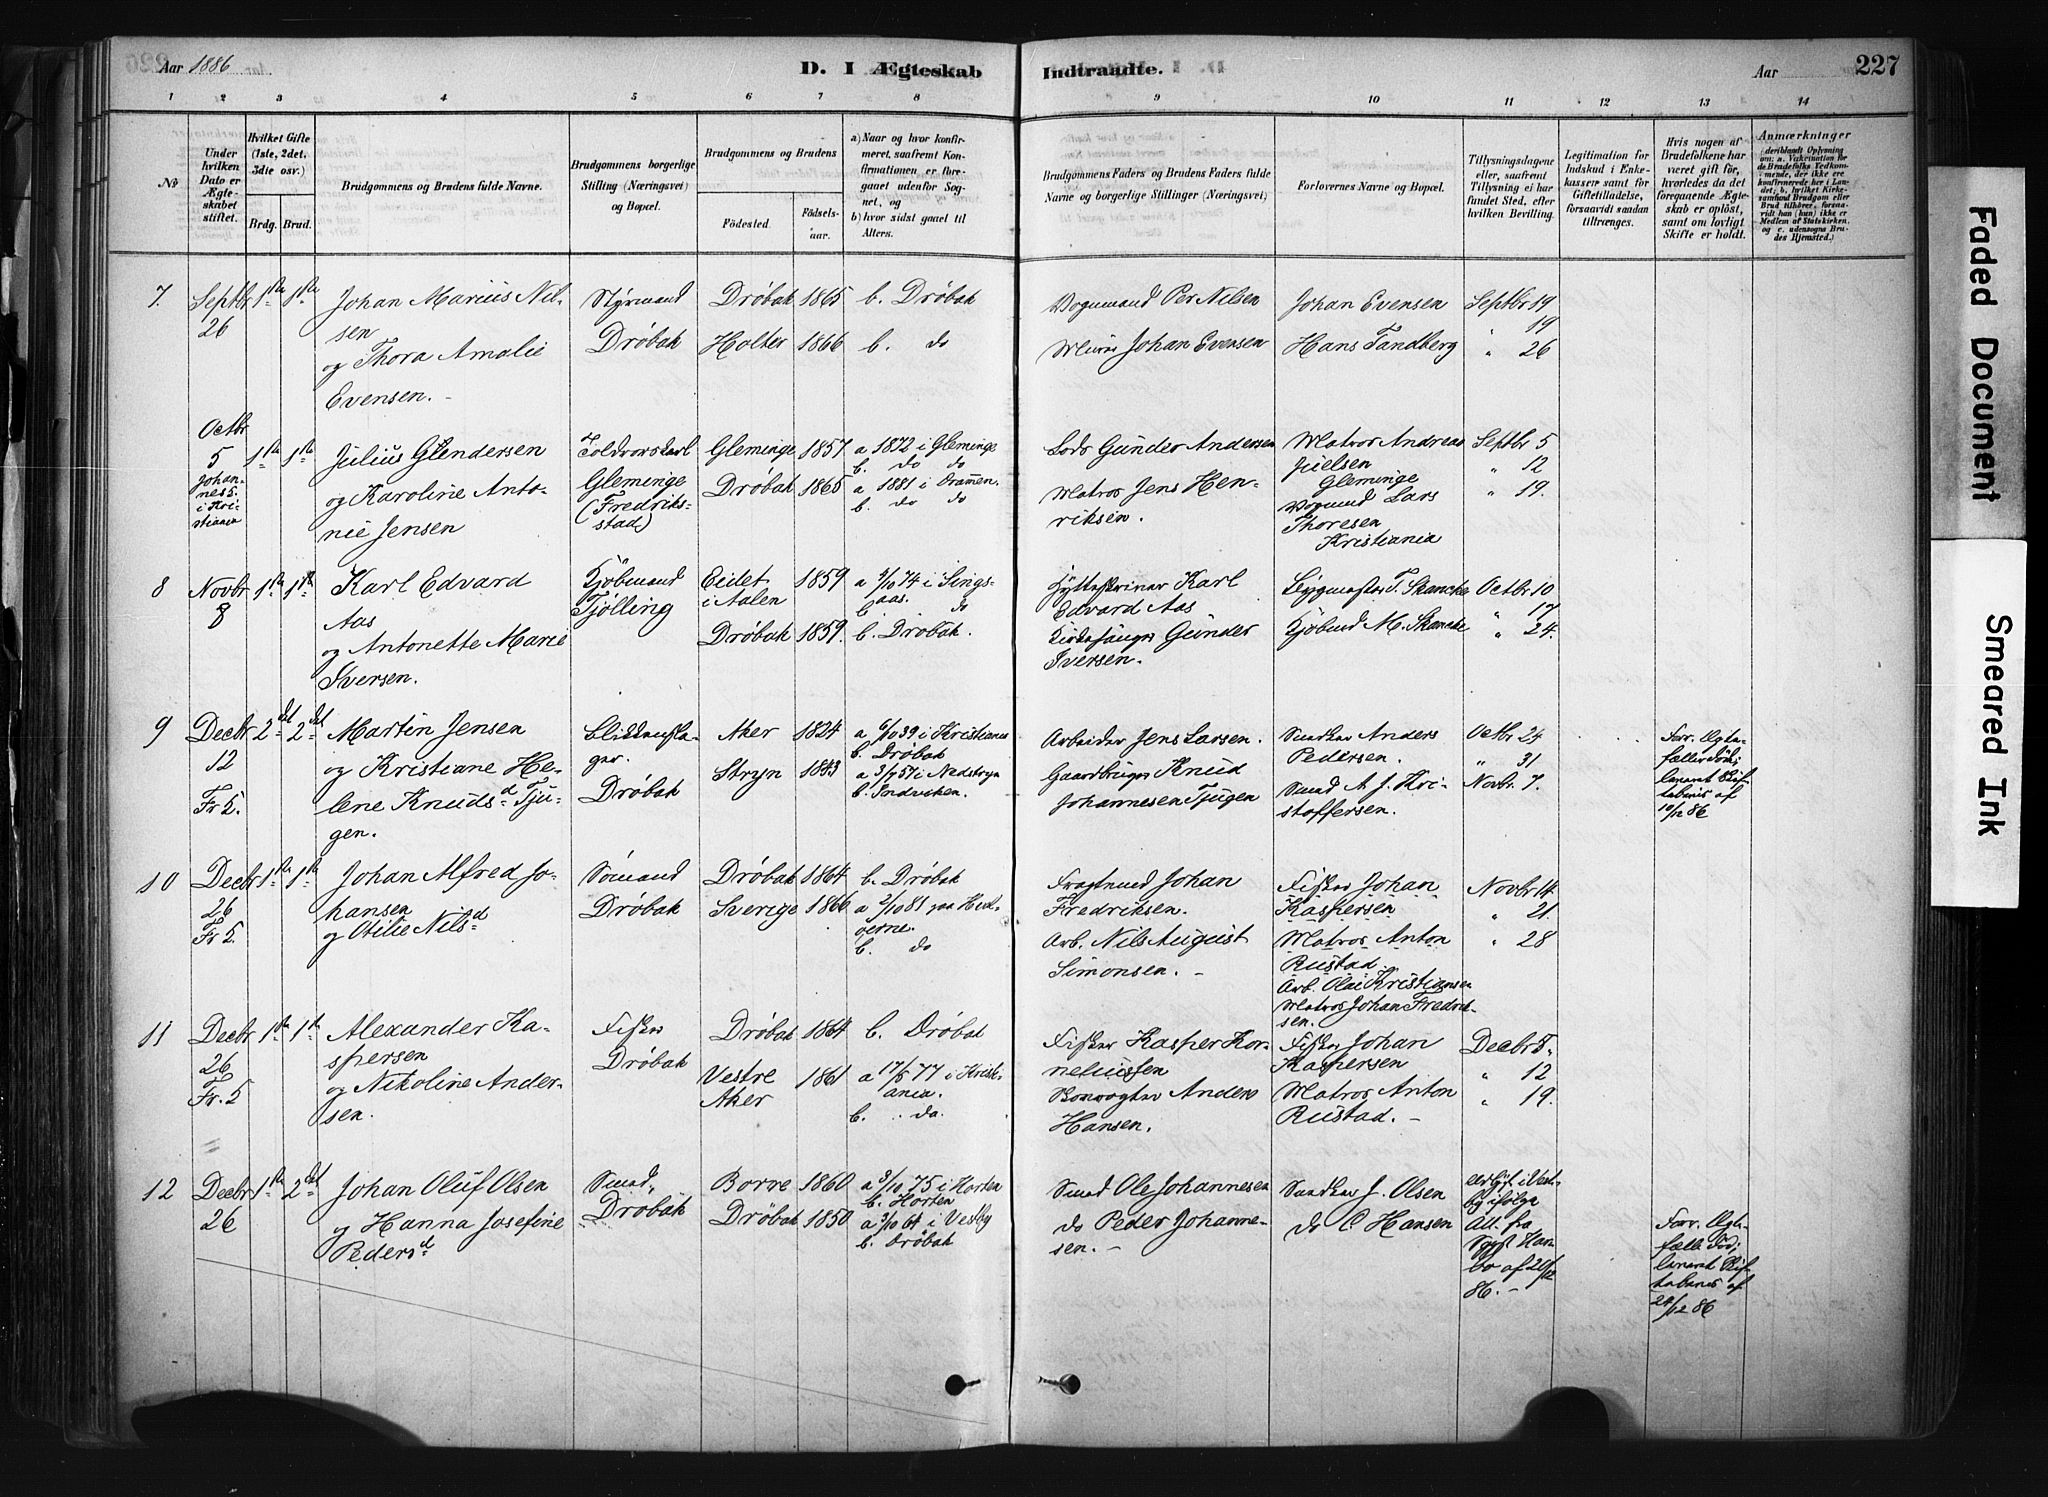 Aar 1886
D. I Ægteskab
Indtraadte.
Aar
227
1 2 3 4 5 6 7 8 9 10 11 12 13 14
No
Under hvilken Dato er Ægteskabet stiftet.
Hvilket Gifte (1ste, 2det, 3die osv.)
Brdg. Brud.
Brudgommens og Brudens fulde Navne.
Brudgommens borgerlige Stilling (Næringsvei) og Bopæl.
Brudgommens og Brudens
Födested. Födsels-aar.
a) Naar og hvor konfirmeret, saafremt Konfirmationen er foregaaet udenfor Sognet, og
b) hvor sidst gaaet til Alters.
Brudgommens Faders og Brudens Faders fulde Navne og borgerlige Stillinger (Næringsvei)
Forlovernes Navne og Bopæl.
Tillysningsdagene eller, saafremt Tillysning ei har fundet Sted, efter hvilken Bevilling.
Legitimation for Indskud i Enkekasser samt for Giftetilladelse, forsaavidt saadan tiltrænges.
Hvis nogen af Brudefolkene har været gift før, hvorledes da det foregaaende Ægteskab er oplöst, samt om lovligt Skifte er holdt.
Anmærkninger
7. Septbr 26 1ste 1ste Johan Marius Nilsen
og Thora Amalie Evensen.
Styrmand Drøbak
Drøbak 1865 b. Drøbak
Holter 1866 b. do
Per Nilsen
Johan Evensen
Johan Evensen
Hans Tandberg
Septbr 19
" 19
" 26
8. Octbr 5 Johannes k. i Kristiania 1ste 1ste Julius Gundersen
og Karoline Antonie Jensen
Glemminge (Fredriksstad)
Gleminge 1857 a 1872 i Gleminge
b. do do
Drøbak 1865 a 1881 i Dramen.
b. do do
Lods Gunder Andersen
Matros Jens Henriksen.
Matros Andreas Juelsen Gleminge
Lars Thoresen Kristiania
Septbr 5
" 12
" 19.
8 Novbr 8 1ste 1ste Karl Edvard Aas
og Antonette Marie Iversen.
Kjøbmand Tjølling
Eidet i Aalen 1859 a 4/10 74 i Singsaas.
b. do
Drøbak 1859. b. Drøbak.
Hytteskriver Karl Edvard Aas
Kirkesanger Gunder Iversen.
T. Skancke
M. Skancke
Octbr 10
" 17
" 24.
9 Decbr 12 Fr. 5. 2det 2det Martin Jensen
og Kristiane Helene Knudsd Tjugen.
Drøbak
Aker 1824 a 6/10 39 i Kristiania
b. Drøbak
Stryn 1843 a 3/7 57 i Nedstryn
b. Indviken.
Arbeider Jens Larsen.
Gaardbruger Knud Johannesen Tjugen
Anders Pedersen.
A. J. Kristoffersen.
Octbr 24
" 31
Novbr 7.
10/12 86
10 Decbr 26 Fr. 5. 1ste 1ste Johan Alfred Johansen
og Otilie Nilsd
Sømand Drøbak
Drøbak 1864 b. Drøbak
Sverige 1866 a 2/10 81 paa Hvaløerne.
b. do
Johan Fredriksen.
Arb. Nils August Simonsen. -
Fisker Johan Kaspersen
Matros Anton Rustad.
Arb. Olai Kristiansen
Matros Johan Fredriksen.
Novbr 14.
" 21.
" 28
11 Decbr 26 Fr. 5 1ste 1ste Alexander Kaspersen
og Nikoline Andersen.
Fisker Drøbak
Drøbak 1864 b. Drøbak
Vestre Aker 1861 a 17/5 77 i Kristiania.
b. do.
Fisker Kasper Korneliussen
Anders Hansen.
Fisker Johan Kaspersen
Matros Anton Rustad. -
Decbr 5.
" 12
" 19.
12 Decbr 26 1ste 2det Johan Oluf Olsen
og Hanna Josefine Pedersd
Drøbak
Borre 1860 a 3/10 75 i Horten
b. Horten
Drøbak 1850 a 2/10 64 i Vestby
b. Drøbak
Ole Johannesen
do Peder Johannesen. -
J. Olsen
do C Hansen
86. -
24/12 86
Faded Document
Smeared Ink